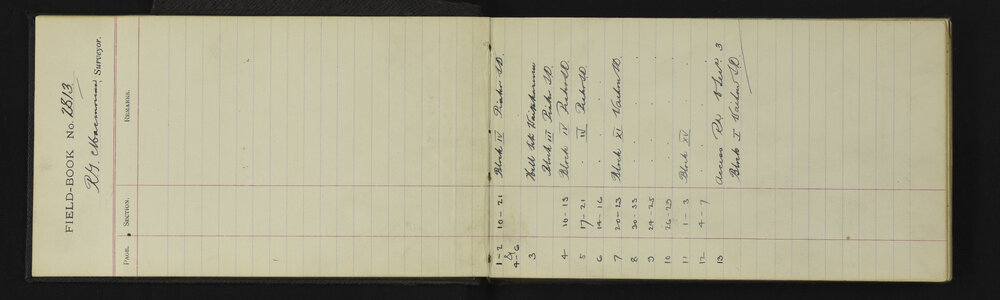 FIELD-BOOK No. 2813
R.G. Macmorran, Surveyor.
PAGE. SECTION. REMARKS.
1-2 10-21 Block IV Piako S.D.
&
4-6
3 Hall Site Waitakaruru
Block III Piako S.D.
4 10-13 Block IV Piako S.D.
5 17-21 . IV Piako S.D.
6 14-16 . . .
7 20-23 Block XI Waihou S.D.
8 30-33 . . .
9 24-25 . . .
10 26-29 . . .
11 1-3 Block XV .
12 4-7 . . .
13 Access Rd. & Sec. 3
Block I Waihou S.D.